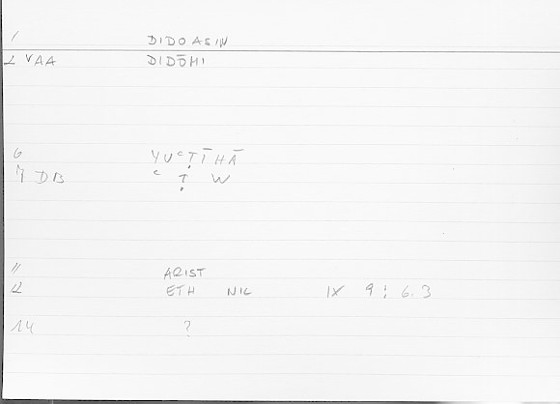 1 DIDOASIN
2 VAA DIDŌMI
6 YUᶜṬĪHĀ
7 DB ᶜ Ṭ W
11 ARIST
12 ETH NIC IX 9 : 6.3
14 ?